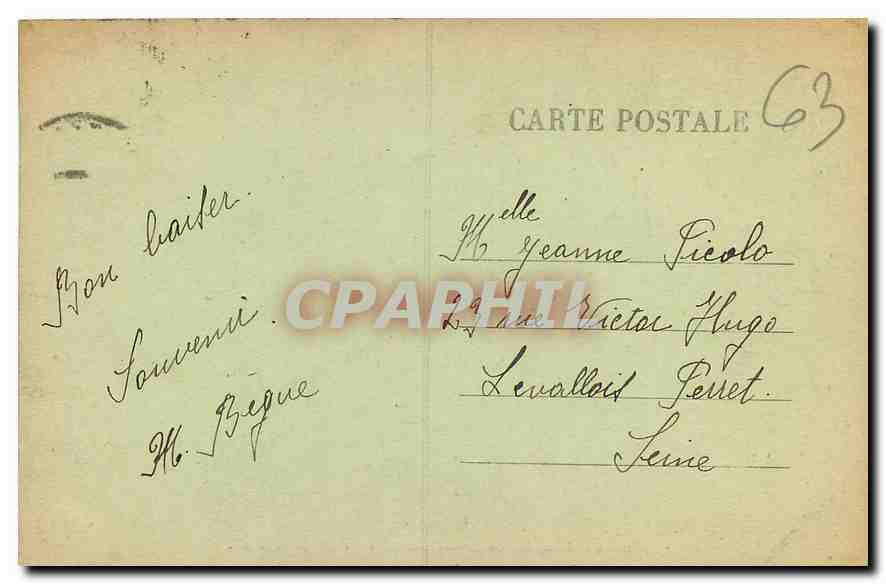 CARTE POSTALE
63
Bon baiser.
Souvenir.
M. Bègue
Melle Jeanne Picolo
23 rue Victor Hugo
Levallois Perret.
Seine
CPAPHIL